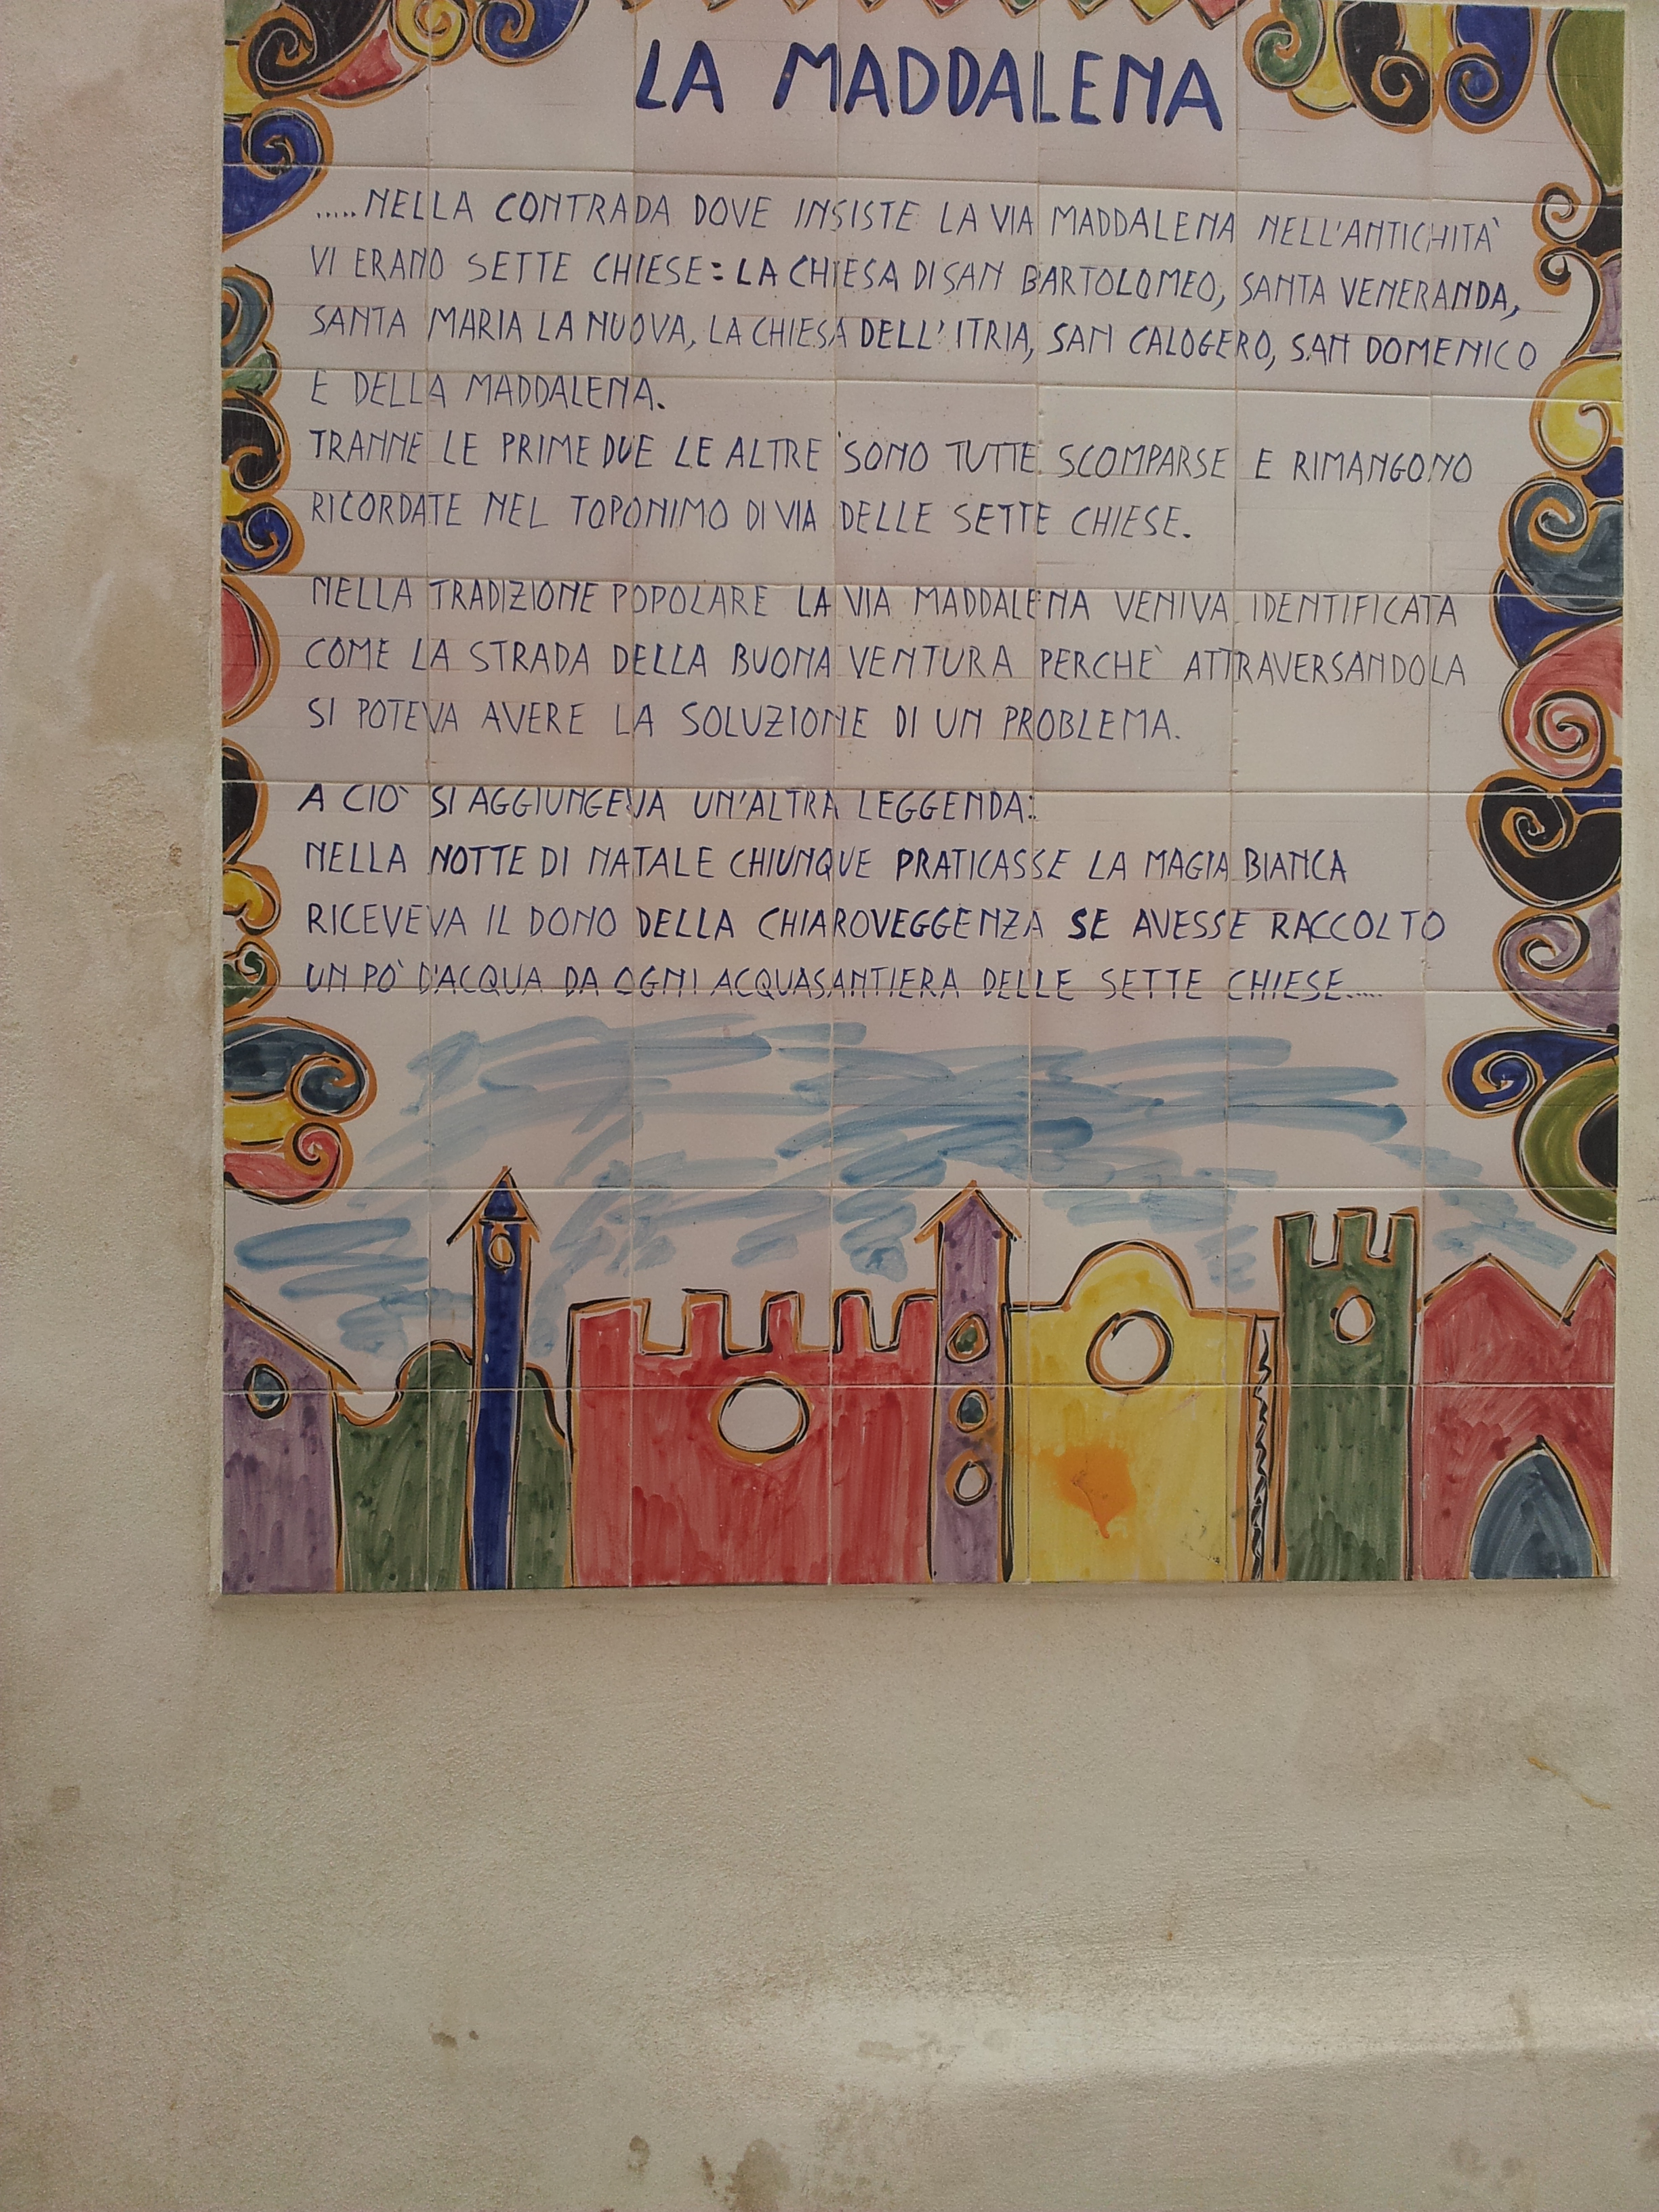 LA MADDALENA
.....NELLA CONTRADA DOVE INSISTE LA VIA MADDALENA NELL'ANTICHITA`
VI ERANO SETTE CHIESE: LA CHIESA DI SAN BARTOLOMEO, SANTA VENERANDA,
SANTA MARIA LA NUOVA, LA CHIESA DELL'ITRIA, SAN CALOGERO, SAN DOMENICO
E DELLA MADDALENA.
TRANNE LE PRIME DUE LE ALTRE SONO TUTTE SCOMPARSE E RIMANGONO
RICORDATE NEL TOPONIMO DI VIA DELLE SETTE CHIESE.
NELLA TRADIZIONE POPOLARE LA VIA MADDALENA VENIVA IDENTIFICATA
COME LA STRADA DELLA BUONA VENTURA PERCHE` ATTRAVERSANDOLA
SI POTEVA AVERE LA SOLUZIONE DI UN PROBLEMA.
A CIO` SI AGGIUNGEVA UN'ALTRA LEGGENDA:
NELLA NOTTE DI NATALE CHIUNQUE PRATICASSE LA MAGIA BIANCA
RICEVEVA IL DONO DELLA CHIAROVEGGENZA SE AVESSE RACCOLTO
UN PO` D'ACQUA DA OGNI ACQUASANTIERA DELLE SETTE CHIESE.....